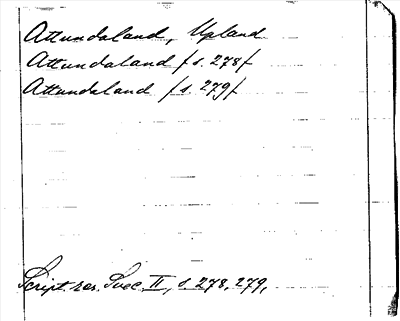 Attundaland, Upland
Attundaland /s. 278/
Attundaland /s. 279/
Script. rer. Svec. II, s. 278, 279,